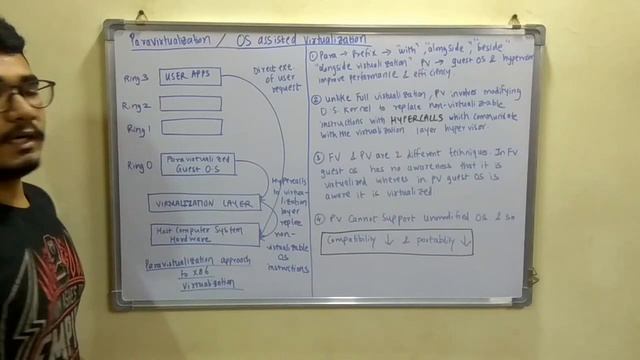 Paravirtualization / OS assisted Virtualization
Direct exe
of user
request
Ring 3
USER APPS
Ring 2
Ring 1
Ring 0
Paravirtualized
Guest O.S
Hypercalls
to virtua-
lization
layer
replace
non-
virtualizable
OS
instructions
VIRTUALIZATION LAYER
Host Computer System
Hardware
Paravirtualization approach
to x86
Virtualization
① Para → Prefix → "with", "alongside", "beside"
"alongside virtualization" PV → guest OS & hypervisor
improve performance & efficiency.
② unlike Full virtualization, PV involves modifying
O.S Kernel to replace non-virtualizable
instructions with HYPERCALLS which communicate
with the virtualization layer hypervisor.
③ FV & PV are 2 different techniques. In FV
guest OS has no awareness that it is
virtualized whereas in PV guest OS is
aware it is virtualized
④ PV Cannot Support unmodified OS & so
Compatibility ↓ & portability ↓